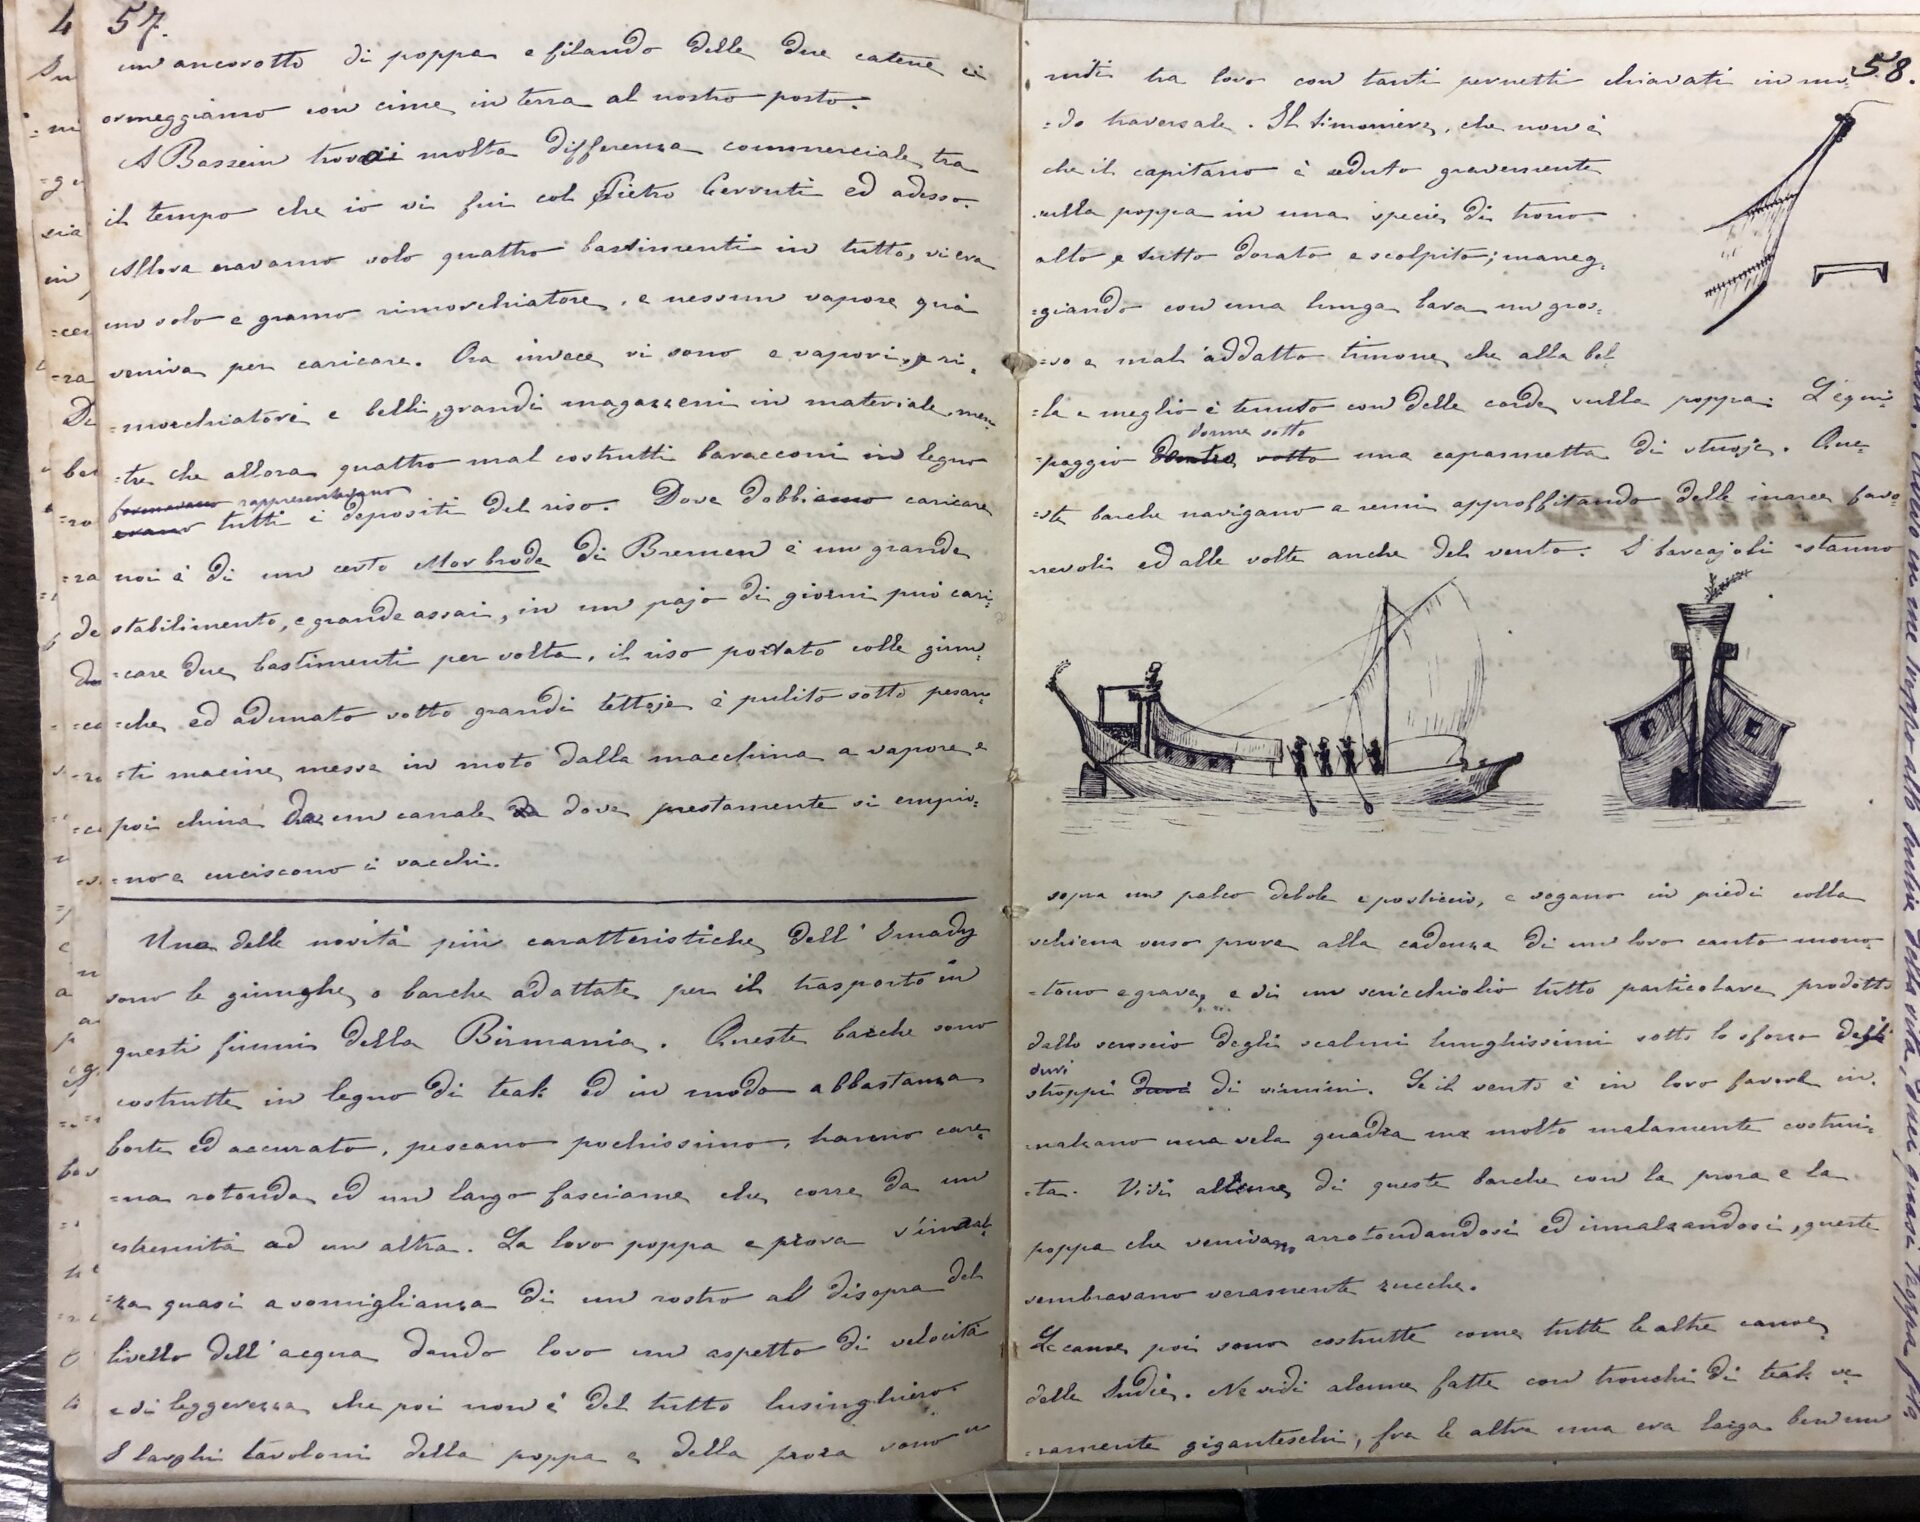 57.
un ancorotto di poppa e filando delle due catene ci
ormeggiamo con cime in terra al nostro posto.
A Bassein trovai molta differenza commerciale tra
il tempo che io vi fui col Pietro Cerruti ed adesso.
Allora eravamo solo quattro bastimenti in tutto, vi era
uno solo e gramo rimorchiatore, e nessun vapore quà
veniva per caricare. Ora invece vi sono e vapori, e ri=
=morchiatori e belli, grandi magazzeni in materiale, men=
=tre che allora quattro mal costrutti baracconi in legno
formavano rappresentavano
erano tutti i depositi del riso. Dove dobbiamo caricare
noi è di un certo Morbrode di Bremen è un grande
stabilimento, e grande assai, in un pajo di giorni può cari=
=care due bastimenti per volta, il riso portato colle giun=
=che ed adunato sotto grandi tettoje è pulito sotto pesan=
=ti macine messe in moto dalla macchina a vapore e
poi china da un canale da dove prestamente si empio=
=no e cuciscono i sacchi.
Una delle novità più caratteristiche dell' Irrady
sono le giunghe o barche adattate per il trasporto in
questi fiumi della Birmania. Queste barche sono
costrutte in legno di teak ed in modo abbastanza
forte ed accurato, pescano pochissimo, hanno care=
=na rotonda ed un largo fasciame che corre da un
estremità ad un altra. La loro poppa e prora s'innal=
=za quasi a somiglianza di un rostro al disopra del
livello dell' acqua dando loro un aspetto di velocità
e di leggerezza che poi non è del tutto lusinghiero.
I larghi tavoloni della poppa e della prora sono u=
58.
niti tra loro con tanti pernetti chiavati in mo=
=do traversale. Il timoniere, che non è
che il capitano è seduto gravemente
sulla poppa in una specie di trono
alto e tutto dorato e scolpito; maneg=
=giando con una lunga bara un gros=
=so e mal addatto timone che alla bel=
=la e meglio è tenuto con delle corde sulla poppa. L'equi=
dorme sotto
=paggio dentro sotto una capannetta di stuoje. Que=
=ste barche navigano a remi approffitando delle maree favo=
=revoli ed alle volte anche del vento. I barcajoli stanno
sopra un palco debole e posticcio, e vogano in piedi colla
schiena verso prora alla cadenza di un loro canto mono=
=tono e grave, e di un scricchiolio tutto particolare prodotto
dallo struscio degli scalmi lunghissimi sotto lo sforzo degli
duri
stroppi duri di vimini. Se il vento è in loro favore in=
=nalzano una vela quadra ma molto malamente costrui=
=ta. Vidi alcune di queste barche con la prora e la
poppa che venivano arrotondandosi ed innalzandosi, queste
sembravano veramente zucche.
Le canoe poi sono costrutte come tutte le altre canoe
delle Indie. Ne vidi alcune fatte con tronchi di teak ve=
=ramente giganteschi, fra le altre una era larga ben un